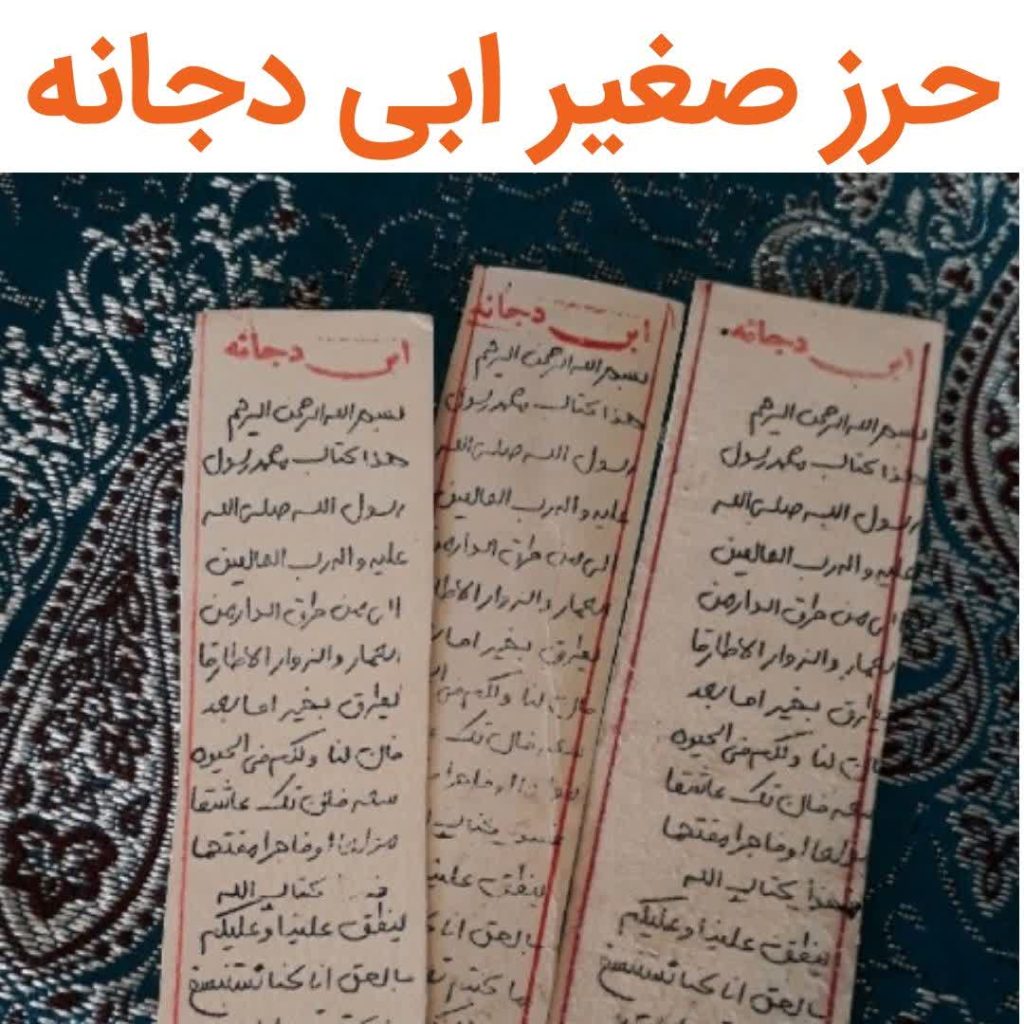 حرز صغیر ابی دجانه
ابی دجانه
بسم الله الرحمن الرحیم
هذا کتاب محمد رسول
رسول الله صلی الله
علیه و اله رب العالمین
الی من طرق الدار من
العمار والزوار الا طارقا
یطرق بخیر اما بعد
فان لنا ولکم فی الحیوه
سعه فان تک عاشقا
مولعا او فاجرا مقتحما
کتاب الله
ینطق علینا و علیکم
بالحق انا کنا نستنسخ
ابی دجانه
بسم الله الرحمن الرحیم
هذا کتاب محمد رسول
رسول الله صلی الله
علیه و اله رب العالمین
الی من طرق الدار من
العمار والزوار الا طا
یطرق بخیر اما
فان لنا ولکم فی
سعه فان تک
کتاب
ینطق علینا
بالحق انا
ما کنتم
ابی دجانه
بسم الله الرحمن الرحیم
هذا کتاب محمد رسول
رسول الله صلی الله
علیه و اله رب العالمین
الی من طرق الدار من
العمار والزوار الا طارقا
یطرق بخیر اما بعد
فان لنا ولکم فی الحیوه
سعه فان تک عاشقا
مولعا او فاجرا مقتحما
فهذا کتاب الله
ینطق علینا و علیکم
بالحق انا کنا نستنسخ